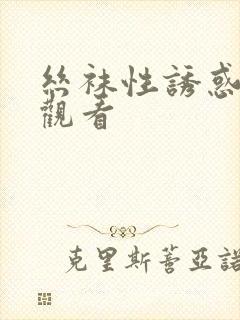 絲袜性誘惑
觀看
克里斯蒼亞諾